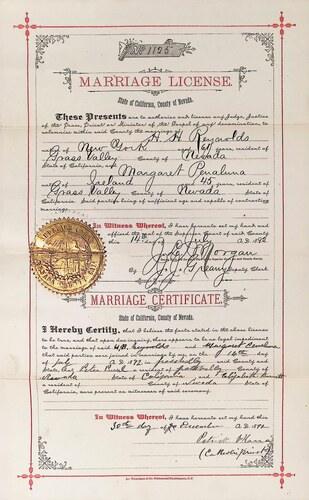 No 1125
MARRIAGE LICENSE.
State of California, County of Nevada.
These Presents are to authorize and license any Judge, Justice
of the Peace, Priest or Minister of the Gospel of any denomination, to
solemnize within said County the marriage of H. H. Reynolds
of New York aged 69 years, resident of
Grass Valley County of Nevada
State of California, and Margaret Penaluna
of Ireland 45 years, resident of
Grass Valley County of Nevada, State of
California. Said parties being of sufficient age and capable of contracting
marriage.
In Witness Whereof, I have hereunto set my hand and
affixed the seal of the Superior Court of said County
this 14th day of July A.D. 1892
J. L. Morgan
By J. J. Greany Deputy Clerk
MARRIAGE CERTIFICATE.
State of California, County of Nevada.
I Hereby Certify, that I believe the facts stated in the above license
to be true, and that upon due inquiry, there appears to be no legal impediment
to the marriage of said H. H. Reynolds and Margaret
that said parties were joined in marriage by me, on the 14th day
of July A.D. 1892, in Grass Valley County and
State; that Peter a resident of Grass Valley County of
Nevada State of California and Elizabeth
a resident of County of Nevada State of
California, are present as witnesses of said ceremony.
In Witness Whereof, I have hereunto set my hand this
30th day of December A.D. 1892
Patrick